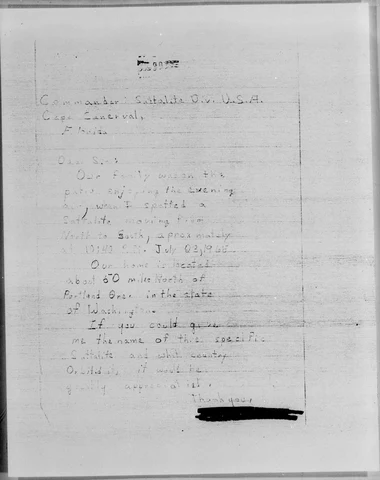 Commander: Sattalite D.V. U.S.A.
Cape Canerval,
Florida
Dear Sir:
Our family was on the
patio enjoying the evening
when I spotted a
Sattalite moving from
North to South,
at P.M. July
Our home is located
about 50 miles North of
Portland Oreg. in the state
of Washington.
If you could give
me the name of this specific
Sattalite and what country
it would be
greatly appreciated.
Thank you,